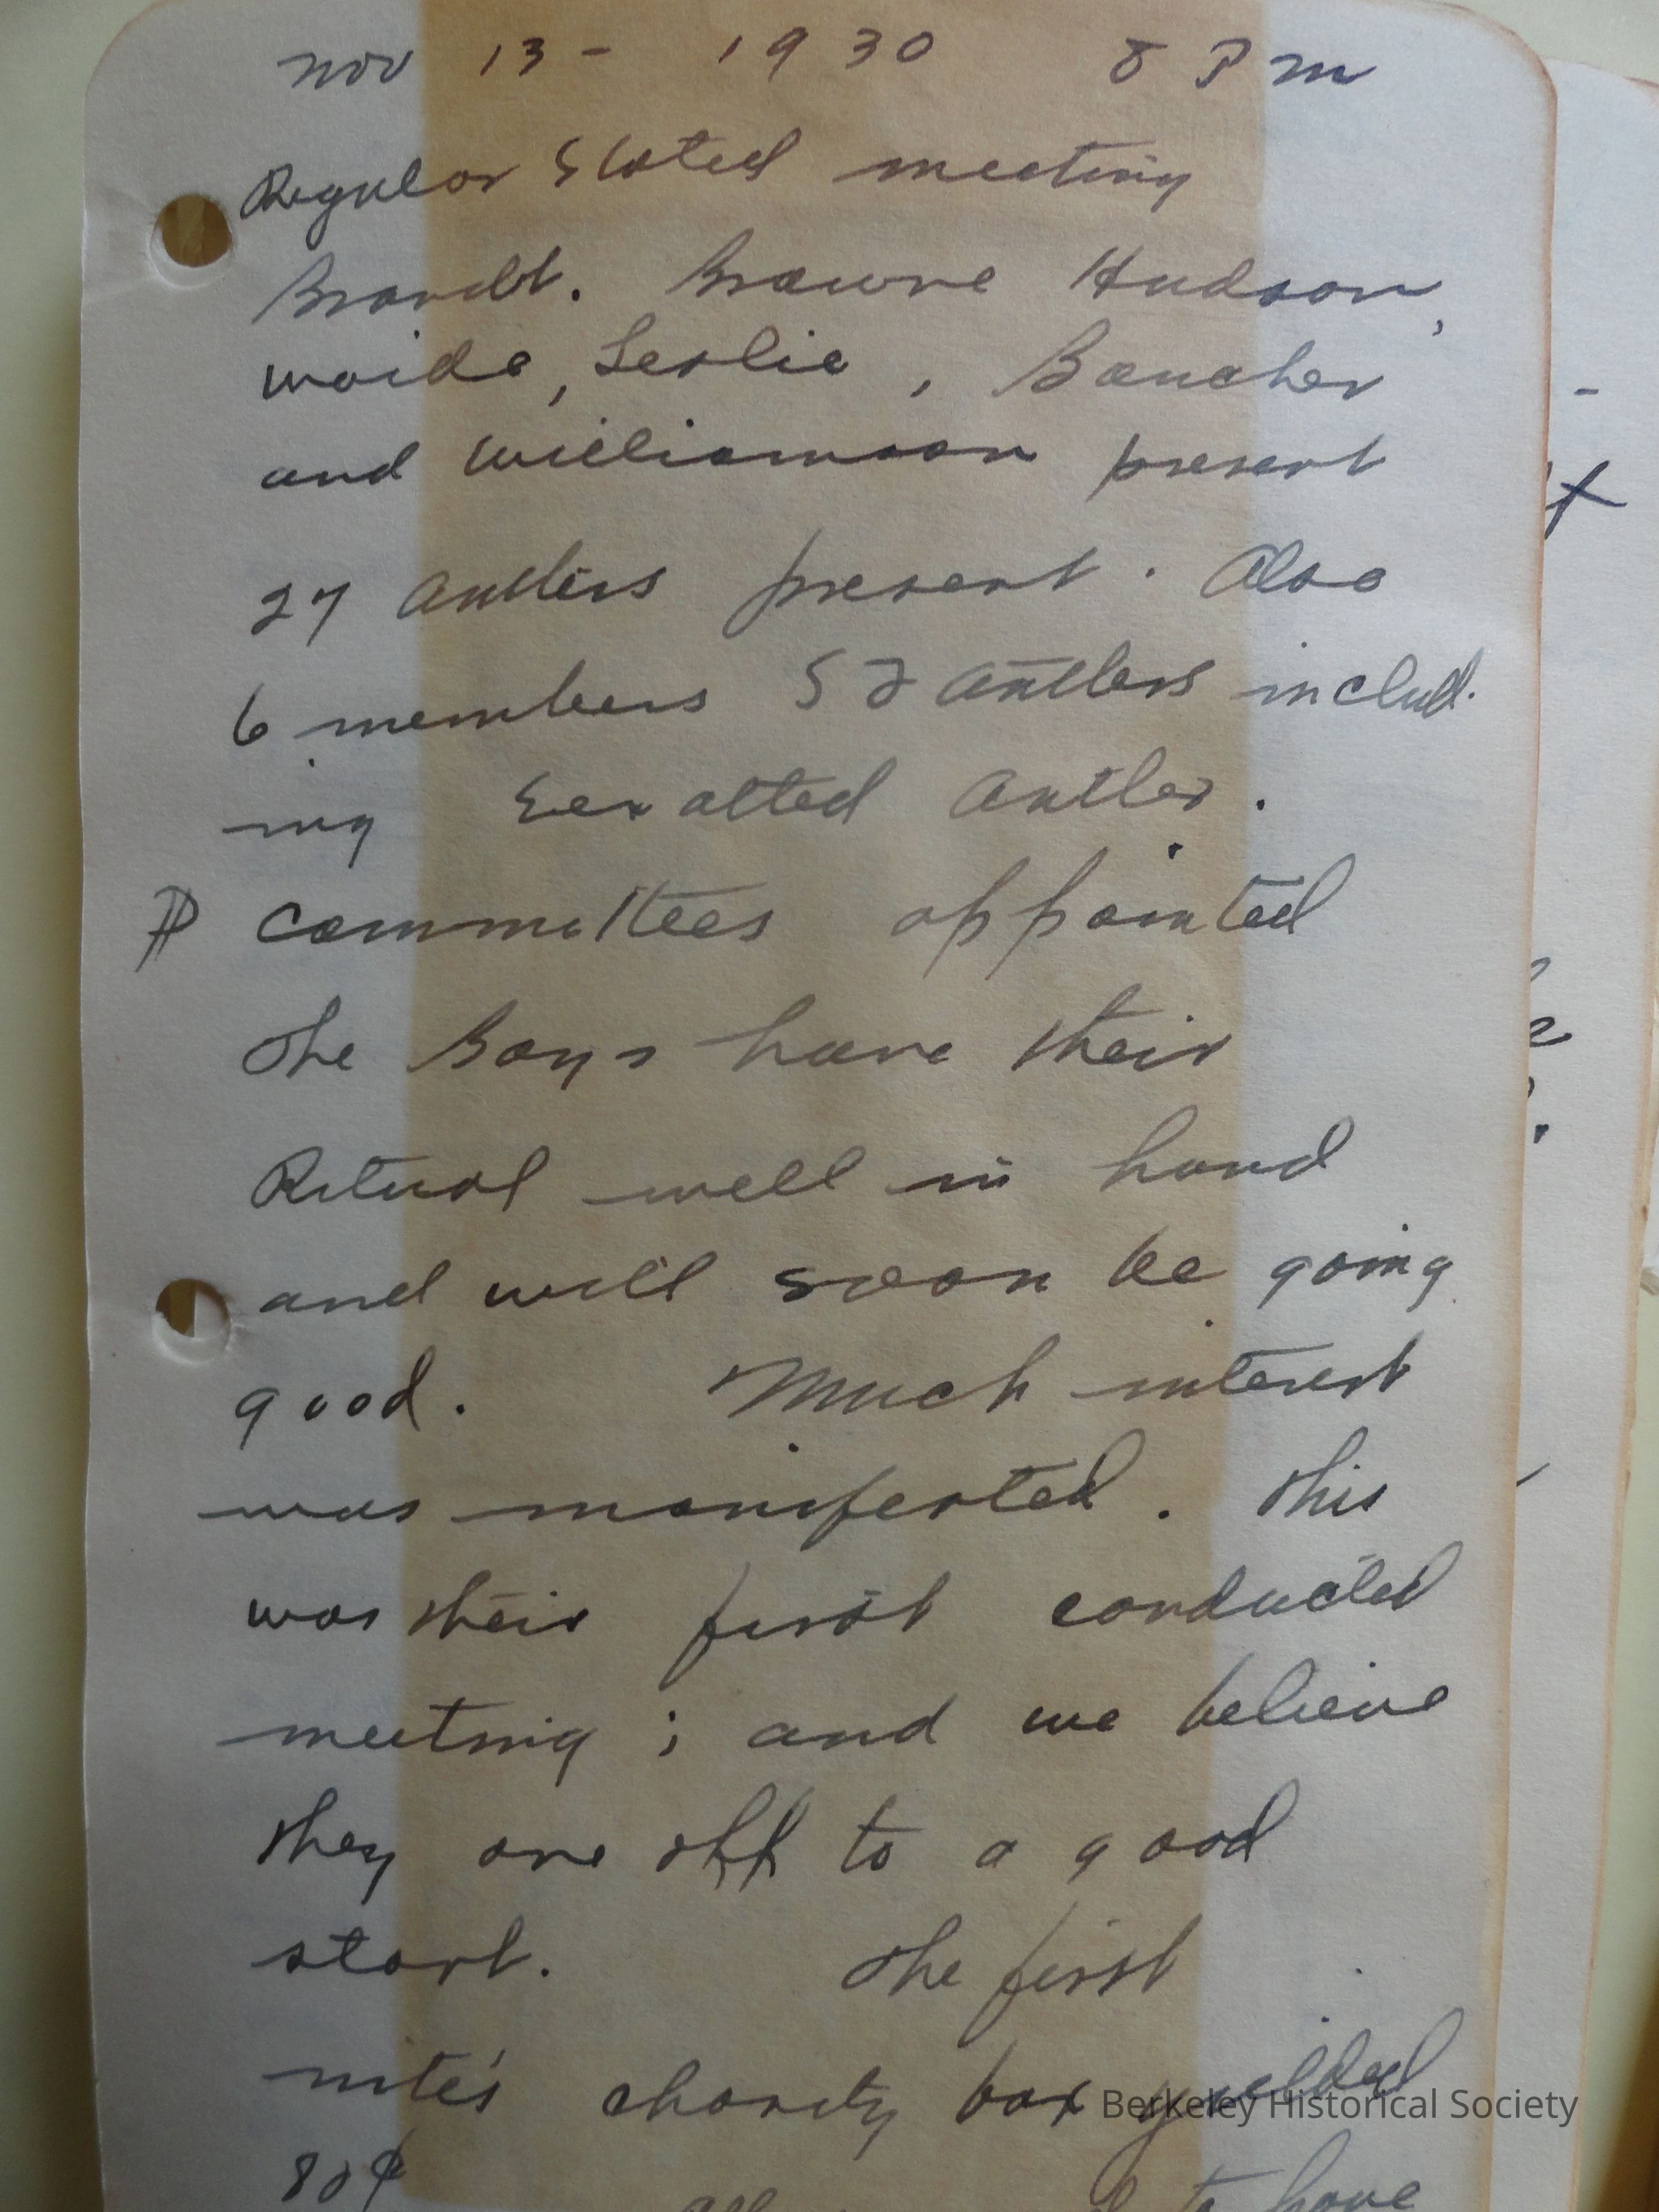 Nov 13 - 1930 8 Pm
Regular Stated meeting
Brandt. Browne Hudson,
Waide, Leslie, Boucher
and Williamson present
27 Antlers present. Also
6 members S F Antlers includ.
ing Exalted Antler.
committees appointed
The Boys have their
Ritual well in hand
and will soon be going
good. Much interest
was manifested. This
was their first conducted
meeting; and we believe
they are off to a good
start. The first
nite's charity box yeilded
80¢ to have
Berkeley Historical Society